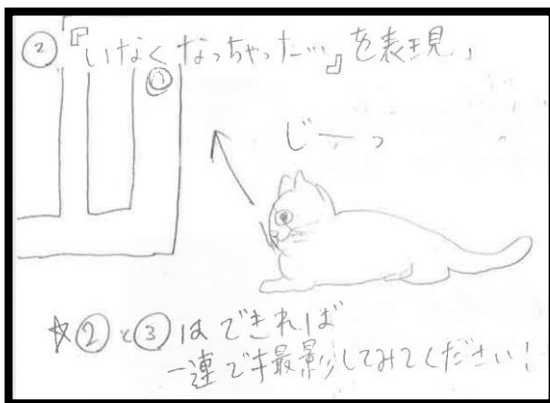 ② 『いなくなっちゃった…』を表現」
じーっ
☆②と③はできれば
一連で撮影してみてください!